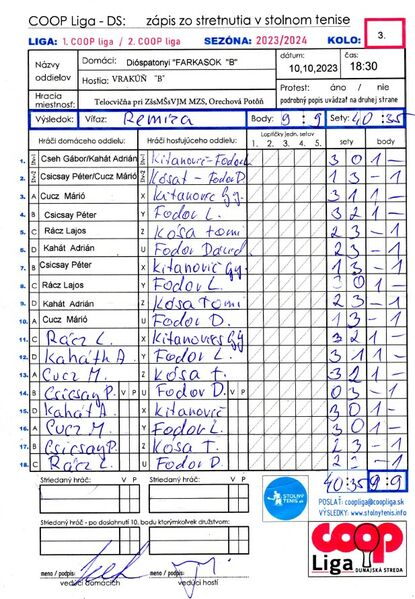 COOP Liga - DS: zápis zo stretnutia v stolnom tenise
LIGA: 1. COOP liga / 2. COOP liga SEZÓNA: 2023/2024 KOLO: 3.
Názvy oddielov Domáci: Dióspatonyi "FARKASOK "B" dátum: 10,10,2023 čas: 18:30
Hostia: VRAKÚŇ "B"
Hracia miestnosť: Telocvičňa pri ZšsMŠsVJM MZS, Orechová Potôň Protest: áno / nie
podrobný popis uvádzať na druhej strane
Výsledok: Víťaz: Remíza Body: 9 : 9 Sety: 40 : 35
Hráči domáceho oddielu: Hráči hosťujúceho oddielu: Loptičky jedn. setov sety body
1. 2. 3. 4. 5.
1. Cseh Gábor/Kahát Adrián Kitanovic-Fodor L 3 0 1 -
2. Csicsay Péter/Cucz Márió Kósat-Fodor D 1 3 - 1
3. A Cucz Márió X Kitanovic Gy. 3 1 1 -
4. B Csicsay Péter Y Fodor L. 3 2 1 -
5. C Rácz Lajos Z Kósa Tomi 2 3 - 1
6. D Kahát Adrián U Fodor David 2 3 - 1
7. B Csicsay Péter X Kitanovic Gy. 1 3 - 1
8. C Rácz Lajos Y Fodor L.
9. D Kahát Adrián Z Kósa Tomi 2 3 - 1
10. A Cucz Márió U Fodor D. 1 3 - 1
11. C Rácz L. X Kitanovics Gy 3 2 1 -
12. D Kaháth A. Y Fodor L. 3 0 1 -
13. A Cucz M. Z Kósa T. 3 2 1 -
14. B Csicsay P. V P U Fodor D. V P 0 3 - 1
15. D Kahát A. X Kitanovic 3 0 1 -
16. A Cucz M. Y Fodor L. 3 0 1 -
17. B Csicsay P. Z Kósa T. 2 3 - 1
18. C Rácz L. U Fodor D.
40:35 9:9
Striedaný hráč: V P Striedaný hráč: V P
STOLNÝ TENIS
POSLAŤ: coopliga@coopliga.sk
VÝSLEDKY: www.stolnytenis.info
Striedaný hráč - po dosiahnutí 10. bodu ktorýmkoľvek družstvom:
coop
Liga
DUNAJSKÁ STREDA
meno / podpis: meno / podpis:
vedúci domácich vedúci hostí